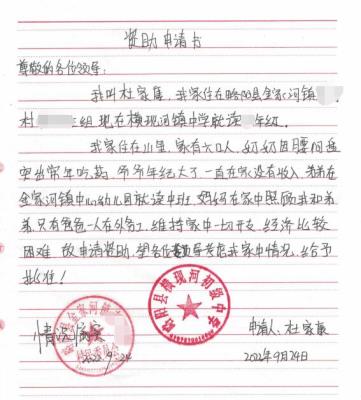 资助申请书
尊敬的各位领导:
我叫杜家康,我家住在略阳县金家河镇
村 组,现在横现河镇中学就读 年级。
我家住在山里,家有六口人,奶奶因腰间盘
突出常年吃药,爷爷年纪大了一直在家没有收入,弟弟在
金家河镇中心幼儿园就读中班,妈妈在家中照顾我和弟
弟,只有爸爸一人在外务工,维持家中一切开支,经济比较
困难,故申请资助,望各位领导考虑我家中情况,给予
批准!
情况属实
2022.9.24
略阳县横现河初级中学
申请人:杜家康
2022年9月24日